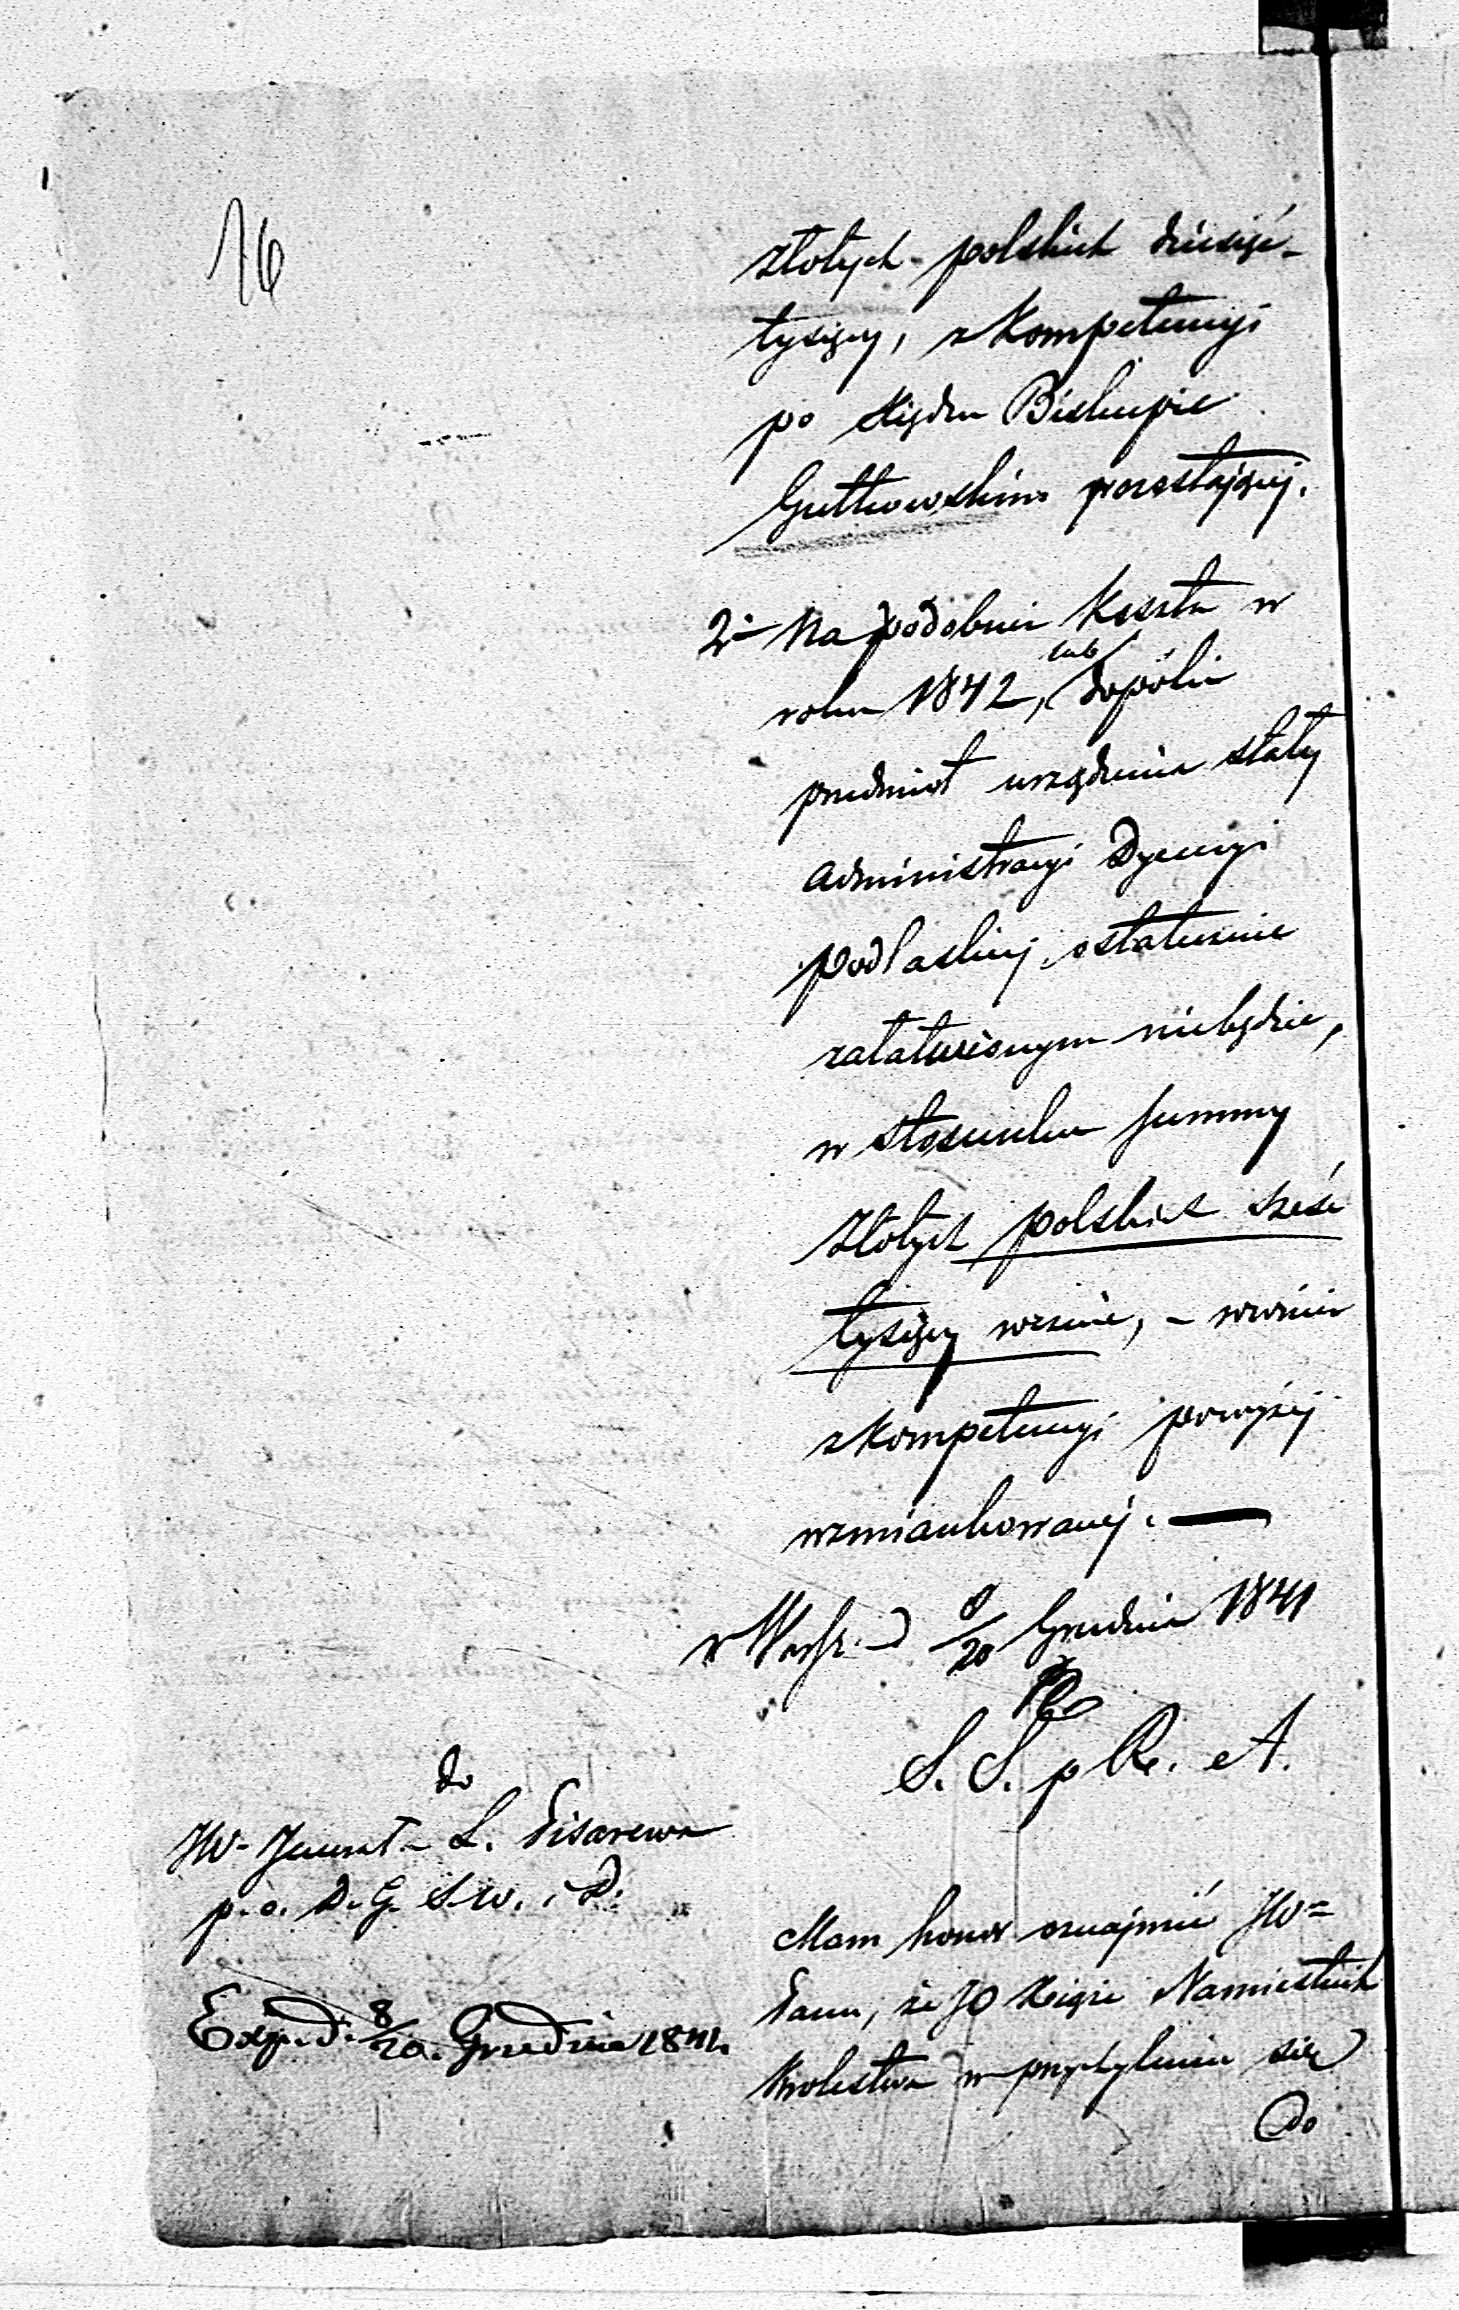 16
złotych polskich dziesięć
tysięcy, z kompetencyi
po Księdzu Biskupie
Gutkowskim pozostającej.
2° Na podobnież koszta w
roku 1842, lub dopóki
przedmiot urządzenia stałej
administracyi Dyecezyi
Podlaskiej ostatecznie
załatwionym niebędzie,
w stosunku summy
złotych polskich sześć
tysięcy rocznie, – również
z kompetencyi powyżej
wzmiankowanej. —
w Warsz. d 8/20 Grudnia 1841
S. S. p R. A.
do
JW. Jenerał. L. Pisarewa
p. o. D. G. S. W. i D.
Exp. d. 8/20. Grudnia 1841.
Mam honor oznajmić JW=
Panu, że JO Xiąże Namiestnik
Królestwa w przychyleniu się
do